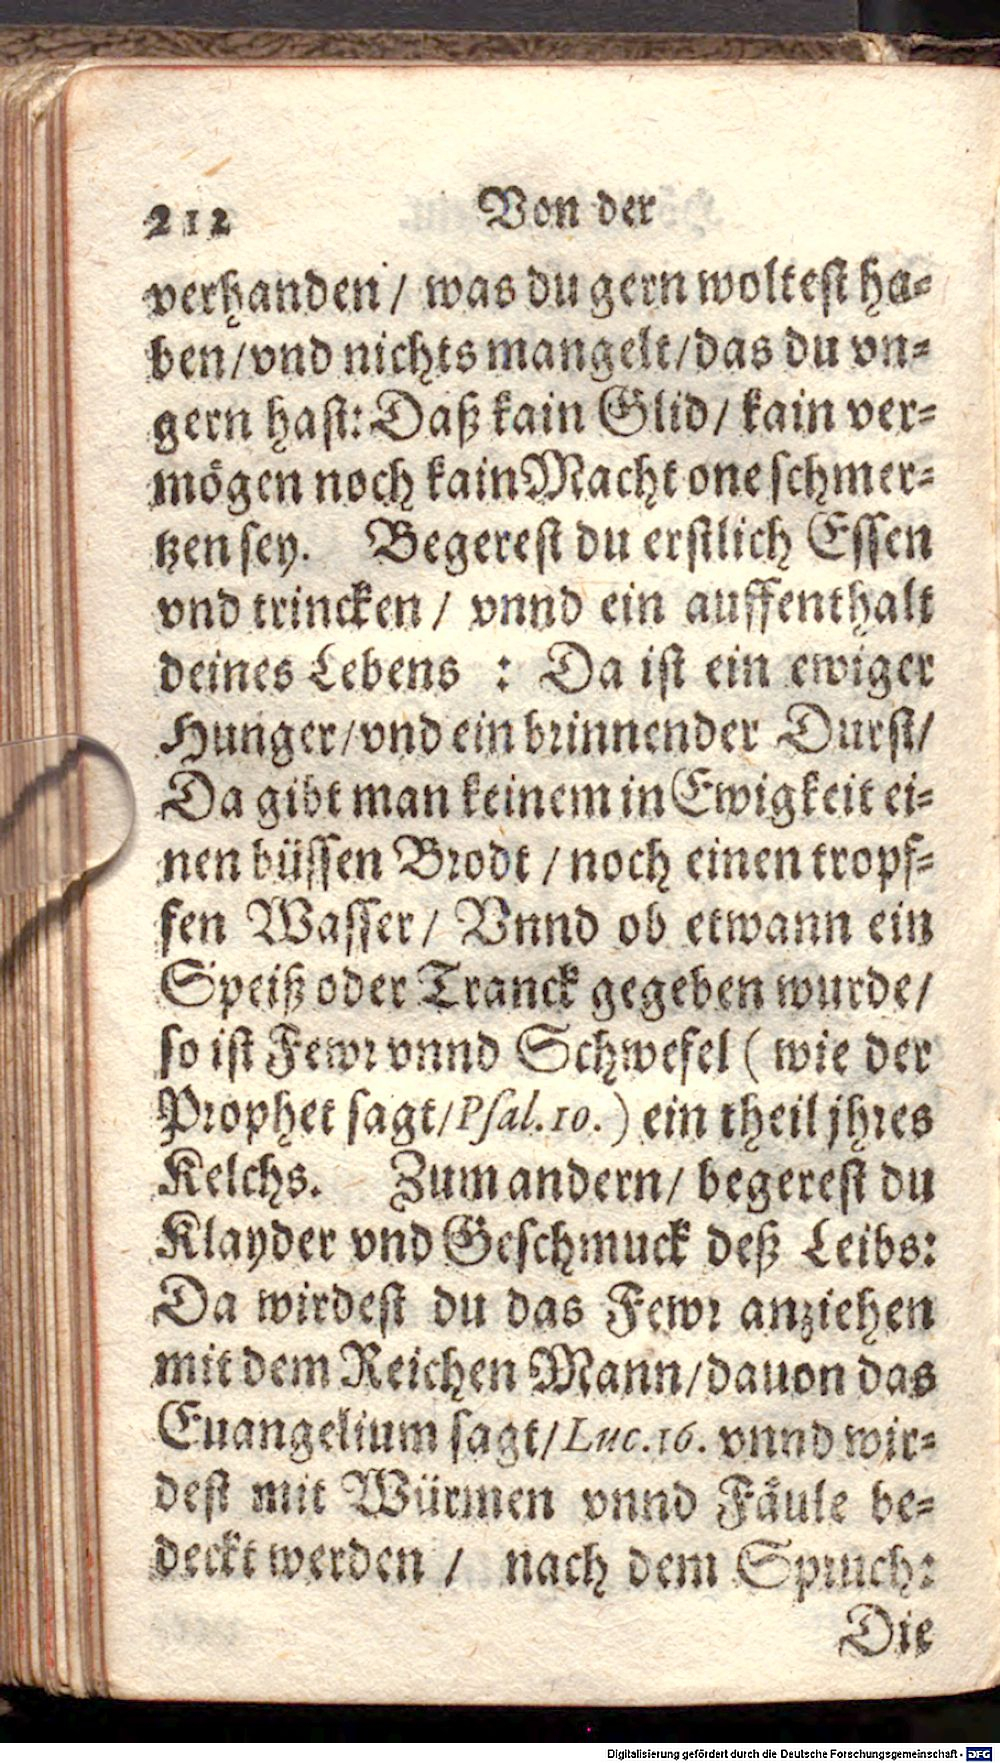 212 Von der
verhanden / was du gern woltest ha-
ben/vnd nichts mangelt/das du vn-
gern hast: Daß kain Glid/ kain ver-
mögen noch kain Macht one schmer-
tzen sey. Begerest du erstlich Essen
vnd trincken / vnnd ein auffenthalt
deines Lebens : Da ist ein ewiger
Hunger/vnd ein brinnender Durst/
Da gibt man keinem in Ewigkeit ei-
nen büssen Brodt / noch einen tropf-
fen Wasser/ Vnnd ob etwann ein
Speiß oder Tranck gegeben wurde/
so ist Fewr vnnd Schwefel ( wie der
Prophet sagt/Psal.10.) ein theil jhres
Kelchs. Zum andern/ begerest du
Klayder vnd Geschmuck deß Leibs:
Da wirdest du das Fewr anziehen
mit dem Reichen Mann/dauon das
Euangelium sagt/Luc.16. vnnd wir-
dest mit Würmen vnnd Fäule be-
deckt werden / nach dem Spruch:
Die
Digitalisierung gefördert durch die Deutsche Forschungsgemeinschaft - DFG